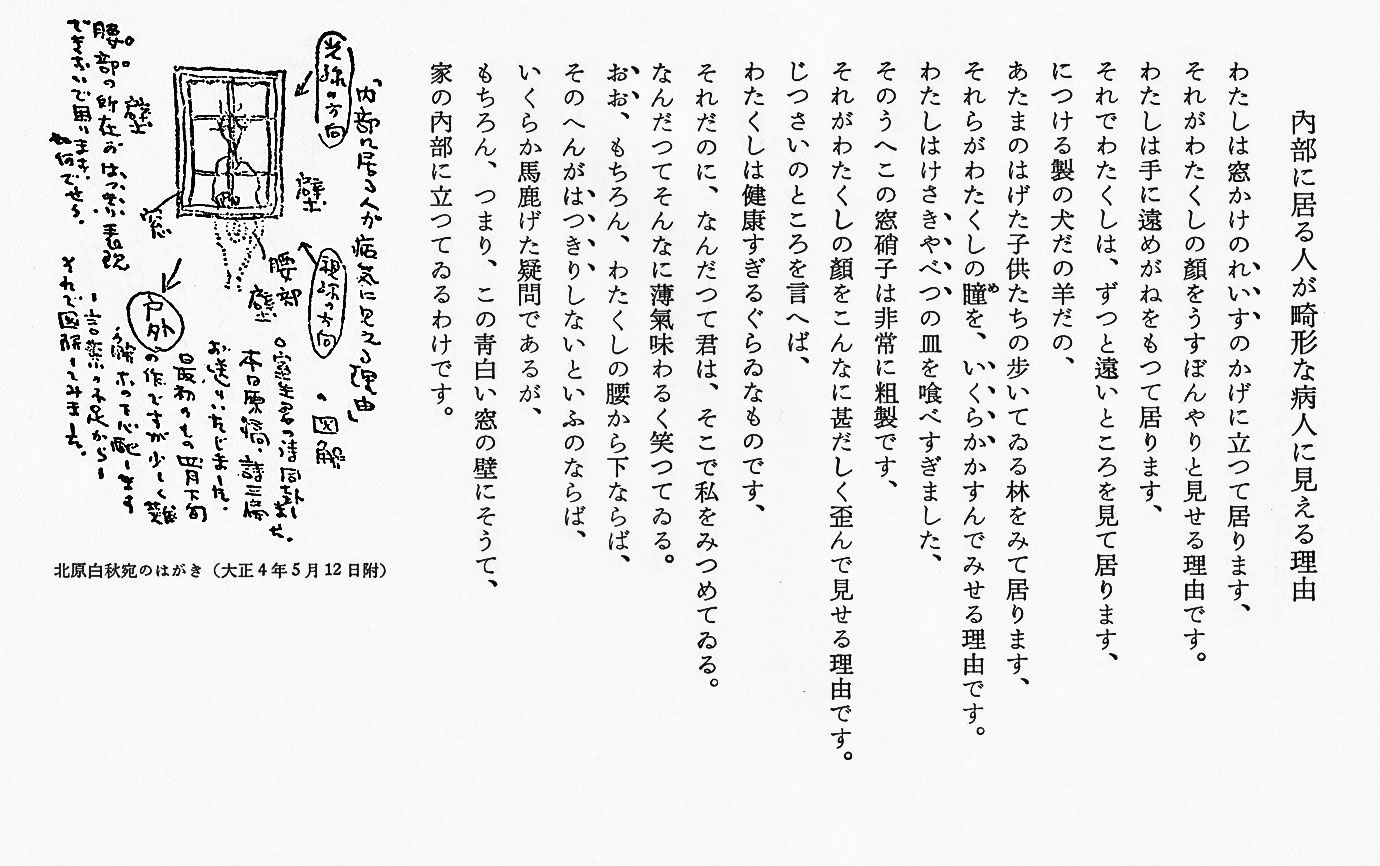 内部に居る人が畸形な病人に見える理由
わたしは窓かけのれいすのかげに立つて居ります、
それがわたくしの顔をうすぼんやりと見せる理由です。
わたしは手に遠めがねをもつて居ります、
それでわたくしは、ずつと遠いところを見て居ります、
につける製の犬だの羊だの、
あたまのはげた子供たちの歩いてゐる林をみて居ります、
それらがわたくしの瞳めを、いくらかかすんでみせる理由です。
わたしはけさきやべつの皿を喰べすぎました、
そのうへこの窓硝子は非常に粗製です、
それがわたくしの顔をこんなに甚だしく歪んで見せる理由です。
じつさいのところを言へば、
わたくしは健康すぎるぐらゐなものです、
それだのに、なんだつて君は、そこで私をみつめてゐる。
なんだつてそんなに薄氣味わるく笑つてゐる。
おお、もちろん、わたくしの腰から下ならば、
そのへんがはつきりしないといふのならば、
いくらか馬鹿げた疑問であるが、
もちろん、つまり、この青白い窓の壁にそうて、
家の内部に立つてゐるわけです。
「内部に居る人が病気に見える理由」
の図解
光線の方向
壁
視線の方向
腰部
壁
窓
壁
戸外
腰部の所在がはつきり表現
できないで困ります。
如何でせう。
室生君の詩同封しませ。
本日原稿、詩三篇
お送りいたしました。
最初のもの四月下旬
の作ですが少しく難
解なので心配します
言葉の不足から
それで図解してみました。
北原白秋宛のはがき（大正４年５月12日附）